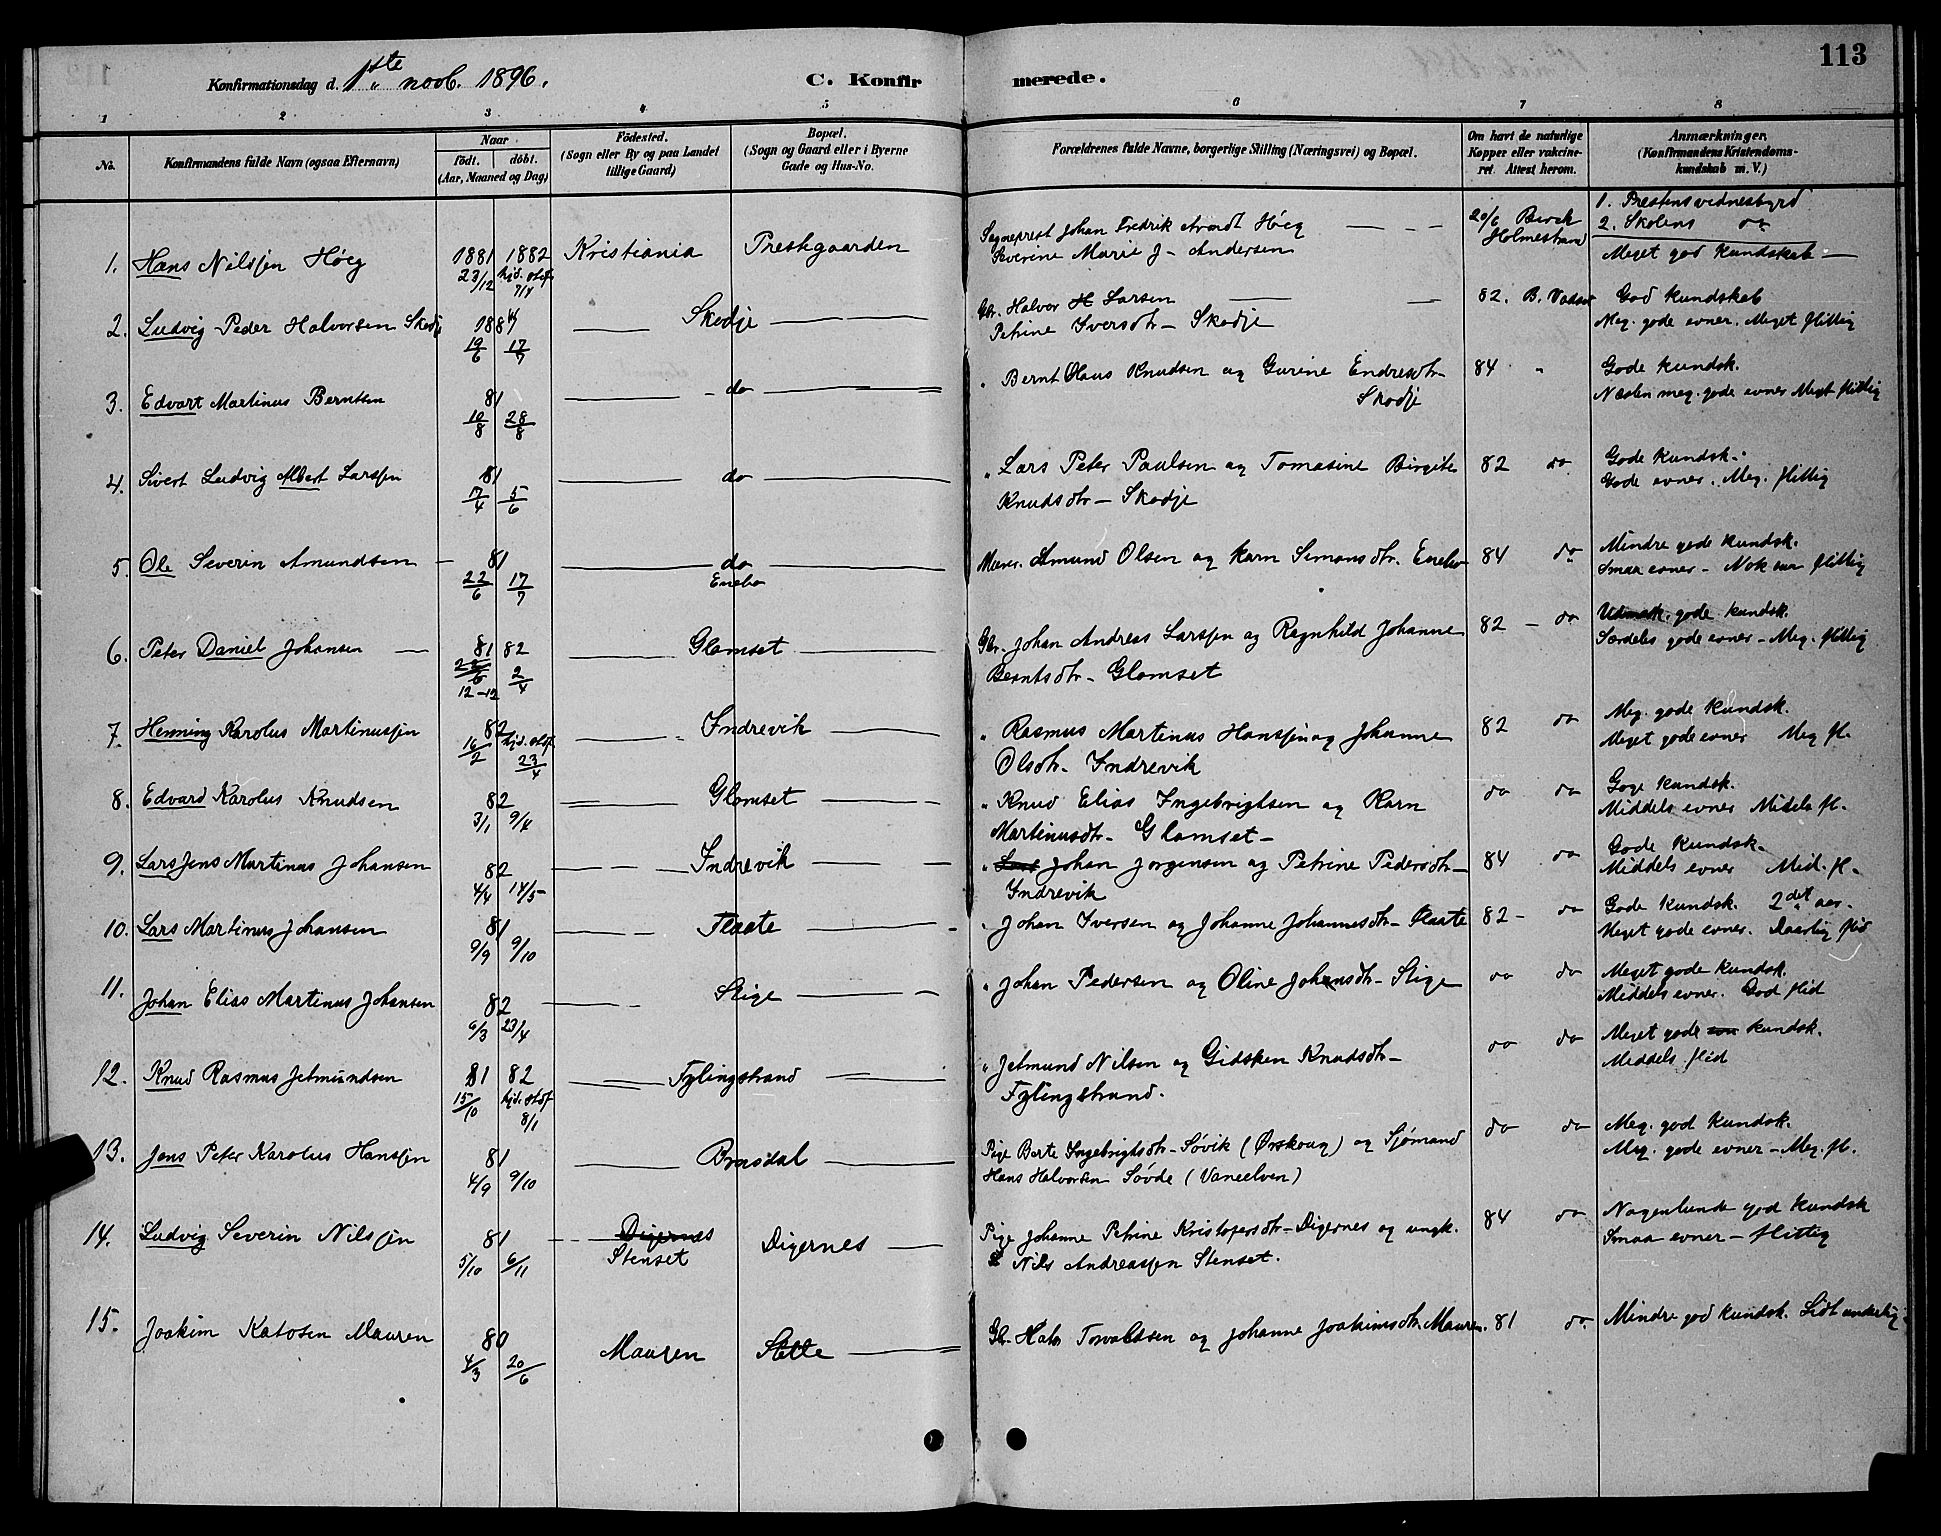 113
Konfirmationsdag d. 1ste novb. 1896.
C. Konfirmerede.
1 2 3 4 5 6 7 8
No.
Konfirmandens fulde Navn (ogsaa Efternavn)
Naar
födt. döbt.
(Aar, Maaned og Dag)
Födested.
(Sogn eller By og paa Landet
lillige Gaard)
Bopæl.
(Sogn og Gaard eller i Byerne
Gade og Hus-No.
Forældrenes fulde Navne, borgerlige Stilling (Næringsvei) og Bopæl.
Om havt de naturlige
Kopper eller vakcine-
ret. Attest herom.
Anmærkninger.
(Konfirmandens Kristendoms-
kundskab m. V.)
1. Prestens vidnesbyrd
2. Skolens do
1. Hans Nilssen Höeg 1881 23/12 1882 hjd. stdf. 7/4 Kristiania Prestgaarden
Sogneprest Johan Fredrik Arndt Höeg
Severine Marie J- Andersen
20/6 Birch
Holmestrand
Meget god kundskab
2. Ludvig Peder Halvorsen Skodje 1881 19/6 17/7 Skodje
Gbr. Halvor H Larsen
Petrine Iversdtr- Skodje
82. B. Vadset
God kundskab
Meg. gode evner. Meget flittig
3. Edvart Martinus Berntsen 81 10/8 28/8 do
" Bernt Olaus Knudsen og Gurine Endresdtr-
Skodje
84 "
Gode kundsk.
Næsten meg. gode evner Meget flittig
4. Sivert Ludvig Albert Larssen 81 7/4 5/6 do
" Lars Peter Paulsen og Tomasine Birgite
Knudsdtr- Skodje
82 do
Gode kundsk.
Gode evner. Meg. flittig
5. Ole Severin Amundsen 81 22/6 17/7 do
Enebo
Amund Olsen og Karn Simonsdtr. Enebo
84 do
Mindre gode kundsk.
Smaa evner - Nok saa flittig
6. Peter Daniel Johansen 81 12-12 82 2/4 Glomset
Gbr. Johan Andreas Larssen og Ragnhild Johanne
Berntsdtr- Glomset
82 - do
Udmærk. gode kundsk.
Særdeles gode evner - Meg. flittig
7. Henning Karolus Martinussen 82 16/2 hjd. stdf. 23/4 Indrevik
" Rasmus Martinus Hanssen og Johanne
Olsdtr- Indrevik
82 do
Meg. gode kundsk.
Meget gode evner Meg fl.
8. Edvard Karolus Knudsen 82 3/1 9/4 Glomset
" Knud Elias Ingebrigtsen og Karn
Martinusdtr- Glomset -
do do
Goge kundsk.
Middels evner Midels fl.
9. Lars Jens Martinus Johansen 82 4/4 14/5 Indrevik
" Lars Johan Jorgensen og Petrine Pedersdtr-
Indrevik
84 do
Gode kundsk.
Middels evner Mid. fl.
10. Lars Martinus Johansen 81 9/9 9/10 Flaate
" Johan Iversen og Johanne Johannesdtr- Flaate
82 - do
Gode kundsk. 2det aar.
Meget gode evner. Daarlig flid
11. Johan Elias Martinus Johansen 82 6/3 23/4 Stige
" Johan Pedersen og Oline Johansdtr- Stige
do do
Meget gode kundsk.
Middels evner. God flid
12. Knud Rasmus Jetmundsen 81 15/10 82 hjd. stdf 8/1 Fylingstrand
" Jetmund Nilsen og Gidsken Knudsdtr-
Fylingstrand.
do do
Meget gode kundsk.
Middels flid
13. Jens Peter Karolus Hanssen 81 4/9 9/10 Brusdal
Pige Berte Ingebrigtsdtr- Søvik (Ørskoug) og Sjømand
Hans Halvorsen Søvde (Vaneelven)
do do
Meg. god kundsk.
Meg. gode evner - Meg. fl.
14. Ludvig Severin Nilssen 81 5/10 6/11 Digernes
Stenset Digernes
Pige Johanne Petrine Kristofersdtr- Digernes og ungk.
Nils Andreassen Stenset.
84 do
Nogenlunde god kundsk
Smaa evner - flittig
15. Joakim Katosen Mauren 80 4/3 20/6 Mauren Stette
Gbr. Torvaldsen og Johanne Joakimsdtr. Mauren.
81 do
Mindre god kundsk. Lidt underlig.